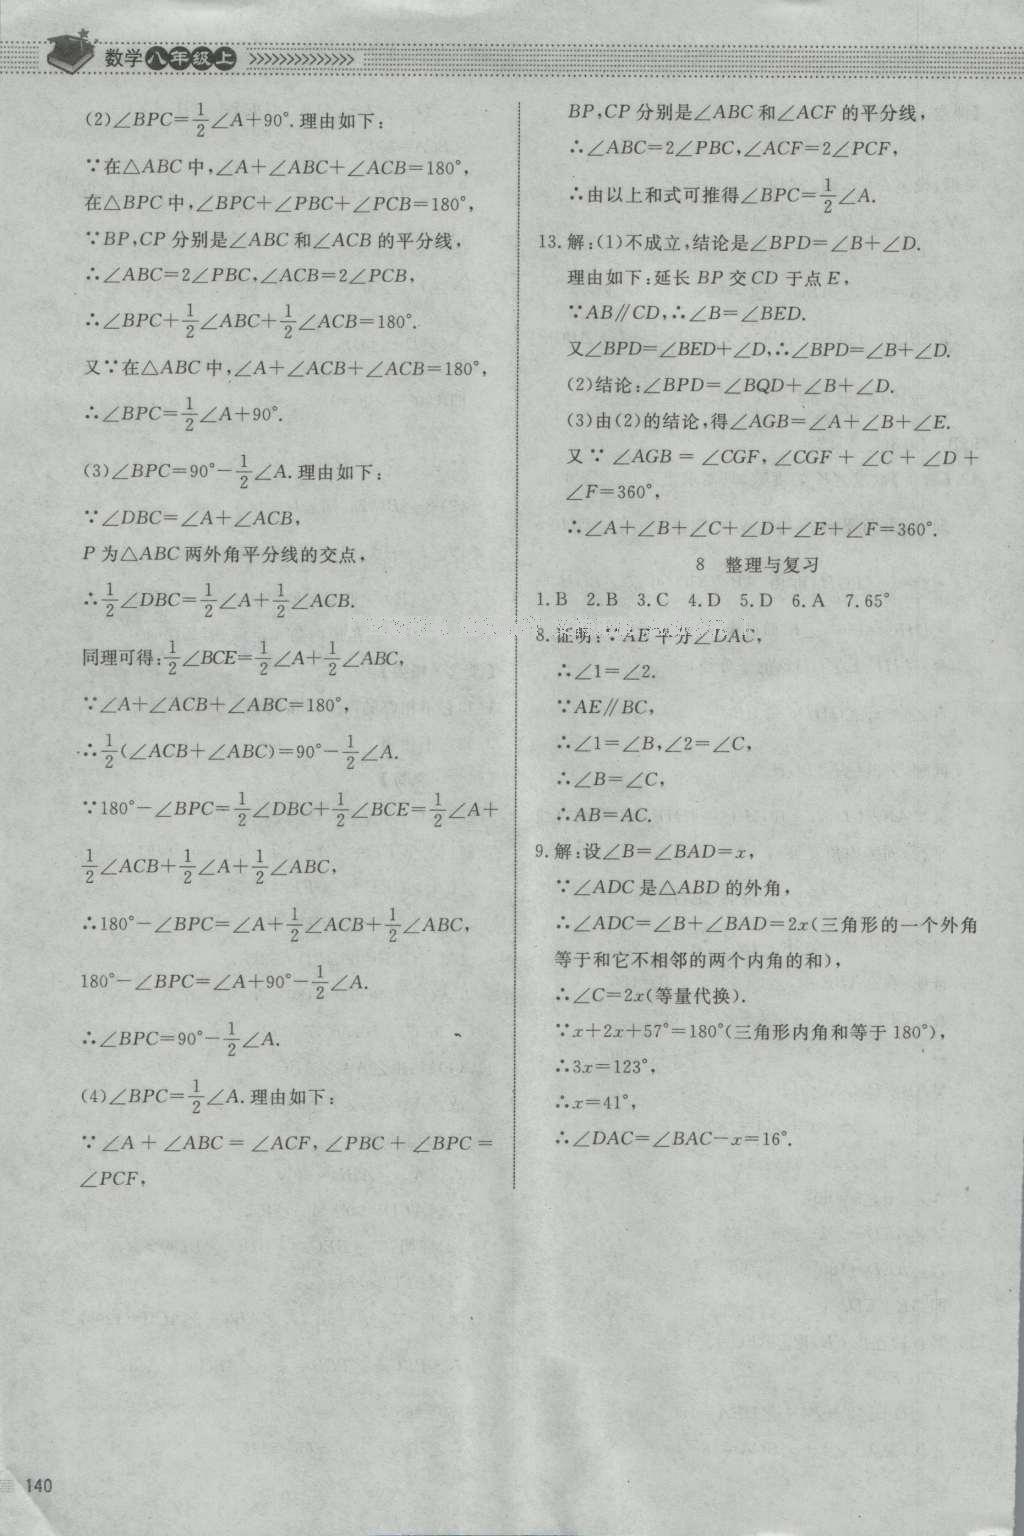 数学八年级上
(2)∠BPC=1/2∠A+90°.理由如下:
∵在△ABC中,∠A+∠ABC+∠ACB=180°,
在△BPC中,∠BPC+∠PBC+∠PCB=180°,
∵BP,CP分别是∠ABC和∠ACB的平分线,
∴∠ABC=2∠PBC,∠ACB=2∠PCB,
∴∠BPC+1/2∠ABC+1/2∠ACB=180°.
又∵在△ABC中,∠A+∠ACB+∠ABC=180°,
∴∠BPC=1/2∠A+90°.
(3)∠BPC=90°-1/2∠A.理由如下:
∵∠DBC=∠A+∠ACB,
P为△ABC两外角平分线的交点,
∴1/2∠DBC=1/2∠A+1/2∠ACB.
同理可得:1/2∠BCE=1/2∠A+1/2∠ABC,
∵∠A+∠ACB+∠ABC=180°,
∴1/2(∠ACB+∠ABC)=90°-1/2∠A.
∵180°-∠BPC=1/2∠DBC+1/2∠BCE=1/2∠A+
1/2∠ACB+1/2∠A+1/2∠ABC,
∴180°-∠BPC=∠A+1/2∠ACB+1/2∠ABC,
180°-∠BPC=∠A+90°-1/2∠A.
∴∠BPC=90°-1/2∠A.
(4)∠BPC=1/2∠A.理由如下:
∵∠A+∠ABC=∠ACF,∠PBC+∠BPC=
∠PCF,
BP,CP分别是∠ABC和∠ACF的平分线,
∴∠ABC=2∠PBC,∠ACF=2∠PCF,
∴由以上和式可推得∠BPC=1/2∠A.
13.解:(1)不成立,结论是∠BPD=∠B+∠D.
理由如下:延长BP交CD于点E,
∵AB∥CD,∴∠B=∠BED.
又∠BPD=∠BED+∠D,∴∠BPD=∠B+∠D.
(2)结论:∠BPD=∠BQD+∠B+∠D.
(3)由(2)的结论,得∠AGB=∠A+∠B+∠E.
又∵∠AGB=∠CGF,∠CGF+∠C+∠D+
∠F=360°,
∴∠A+∠B+∠C+∠D+∠E+∠F=360°.
8 整理与复习
1.B 2.B 3.C 4.D 5.D 6.A 7.65°
8.证明:∵AE平分∠DAC,
∴∠1=∠2.
∵AE∥BC,
∴∠1=∠B,∠2=∠C,
∴∠B=∠C,
∴AB=AC.
9.解:设∠B=∠BAD=x,
∵∠ADC是△ABD的外角,
∴∠ADC=∠B+∠BAD=2x(三角形的一个外角
等于和它不相邻的两个内角的和),
∴∠C=2x(等量代换).
∵x+2x+57°=180°(三角形内角和等于180°),
∴3x=123°,
∴x=41°,
∴∠DAC=∠BAC-x=16°.
140